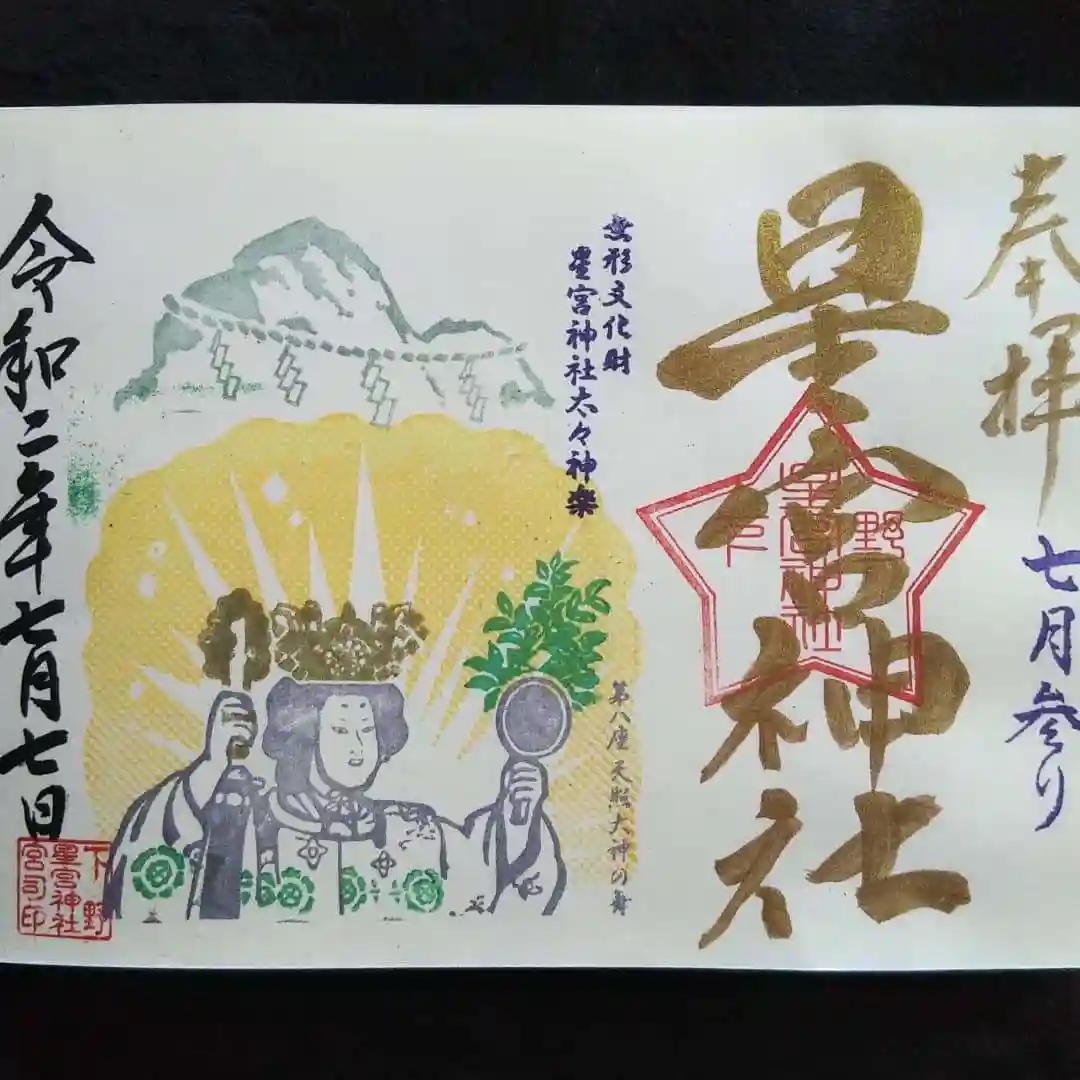 奉拝
七月参り
星宮神社
下野
星宮神社
無形文化財
星宮神社太々神楽
第八座天照大神の舞
令和二年七月七日
下野
星宮神社
宮司印